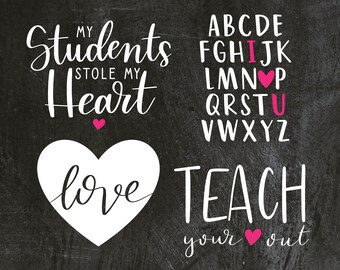 MY
Students
STOLE MY
Heart
ABCDE
FGHIJK
LMN♥P
QRSTU
VWXYZ
love
TEACH
your ♥ out